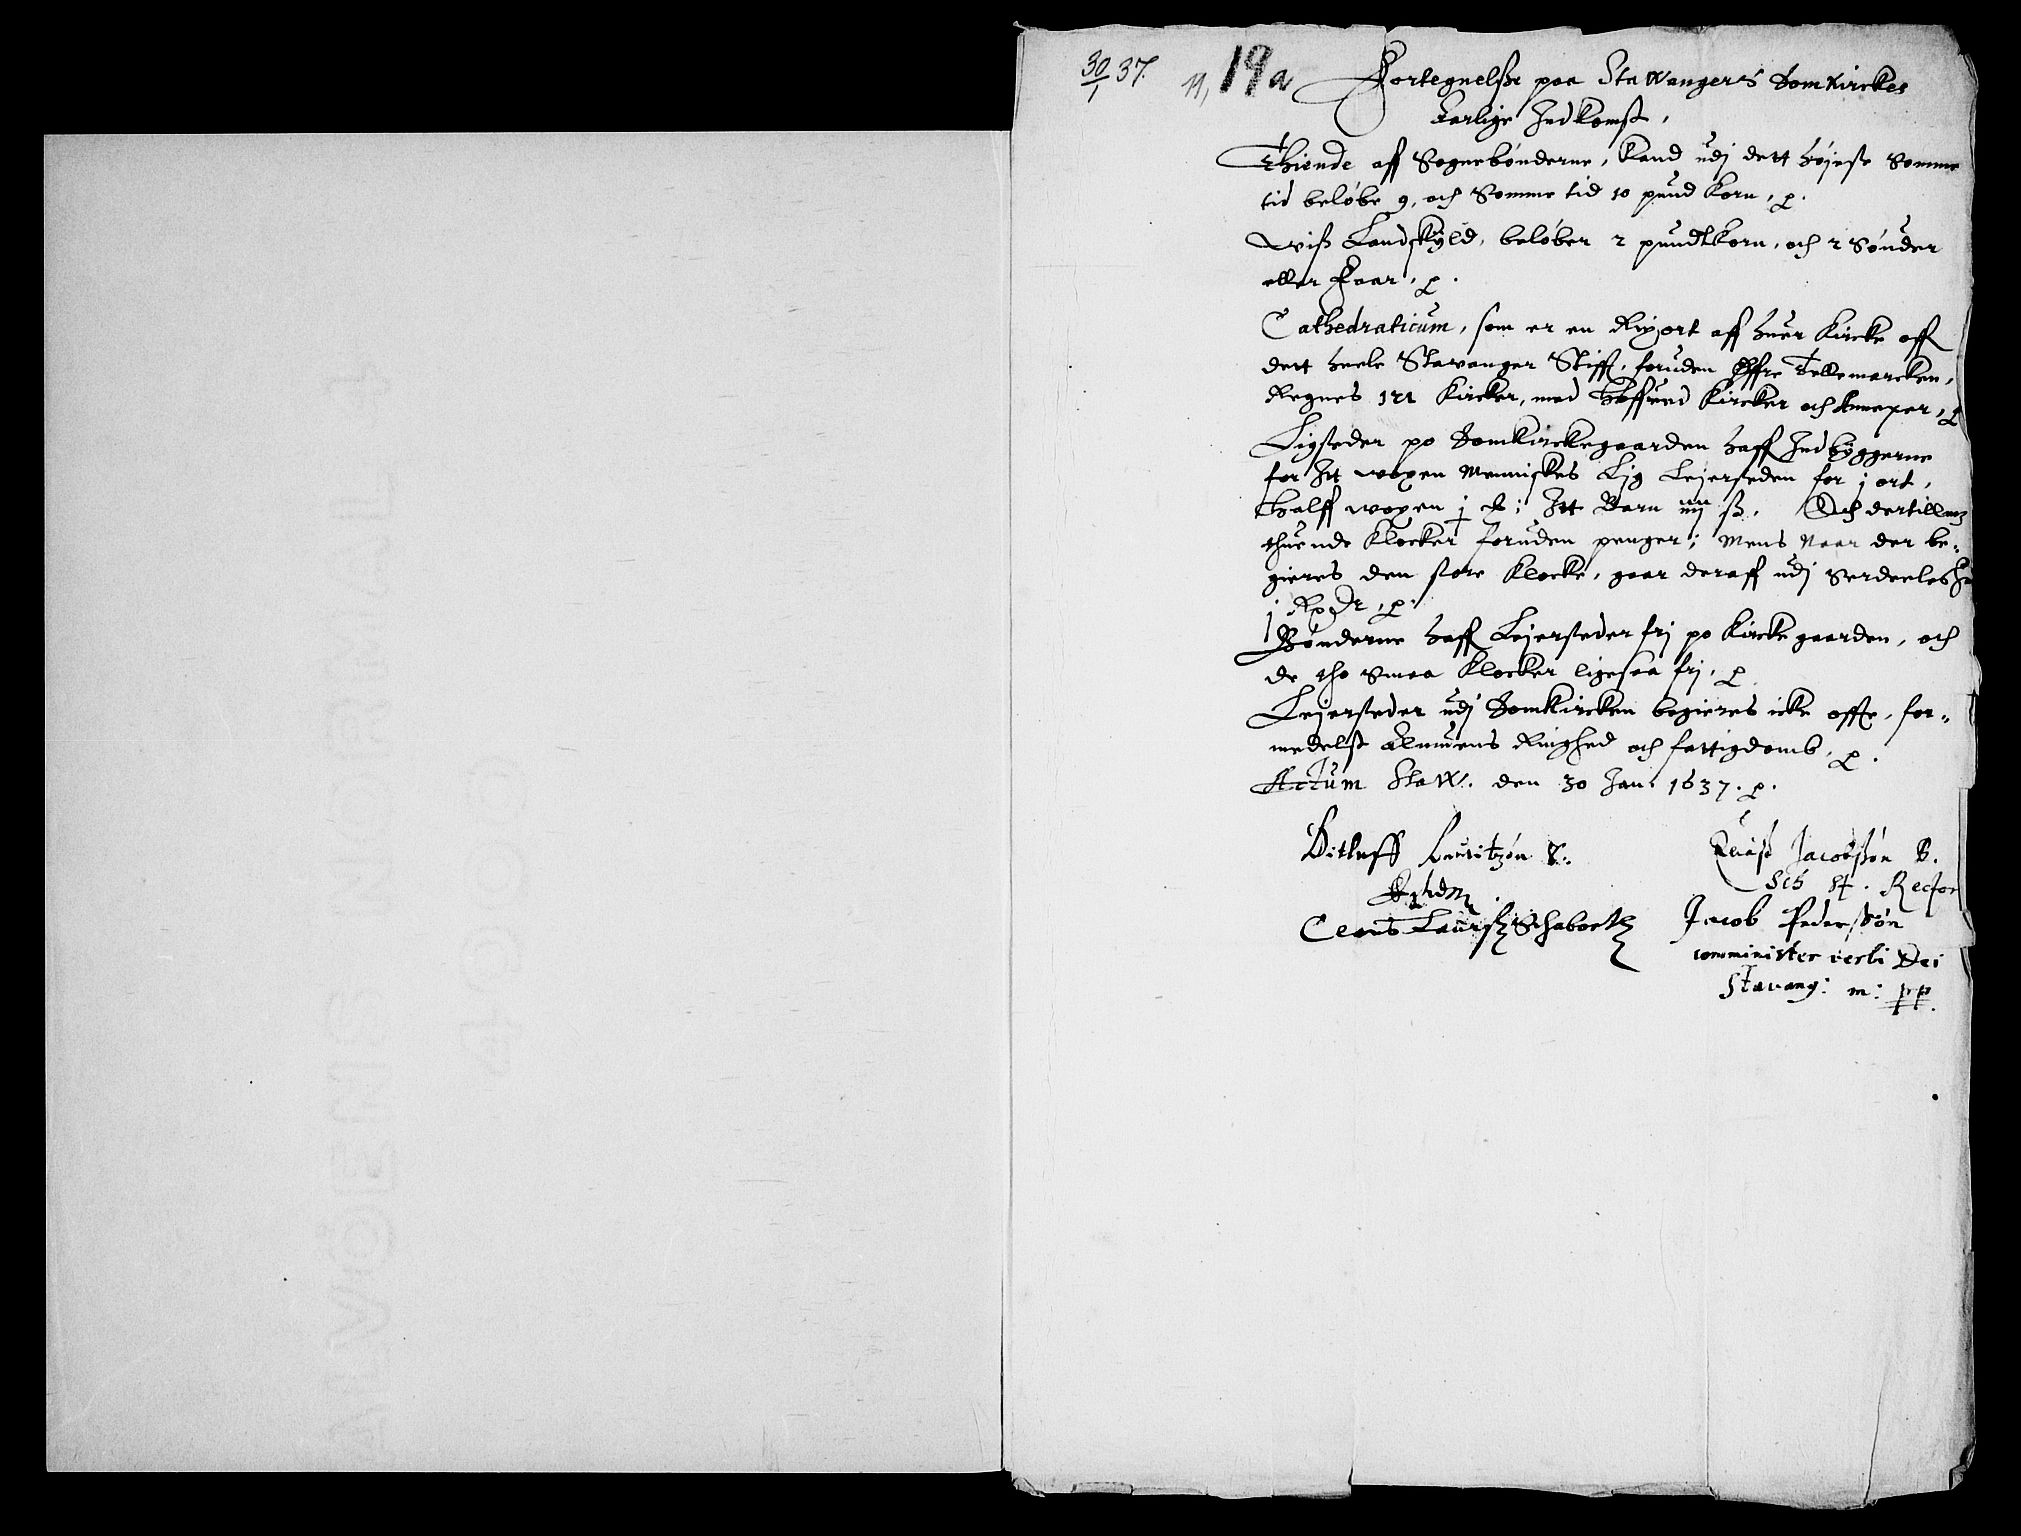 30/1 37.
19 a
Fortegnelße paa StaWangers Domkirckes
Jarlige Indkomst,
Thiende aff Sognebønderne, Kand udj dett høieste Somme
tid beløbe 9, och Somme tid 10 pund Korn, p.
Wiß Landskÿld, beløber 2 pundtkorn, och 2 Sønder
eller Faar, p.
Cathedraticum, som er en Rixort aff huer Kircke aff
dett heele Stavanger Stifft, foruden Øffre Tellemarcken,
Regnes 121 Kircker, med Høffued Kircker och Annexer, p
Ligsteder po Domkirckegaarden haffr Indbÿggerne
for Itt woxen Menniskes Lig Leiersteden for j ort,
Halff woxen j ; Itt Barn iiij ß. Och dertill
thuende Klocker foruden penger; Mens Naar der be-
gieres den store Klocke, gaar deraff udj Serdeeleshed
j Rxdr, p.
Bønderne haffr Leiersteder frj po Kirckegaarden, och
de tho Smaa Klocker ligesaa frj, p
Leiersteder udj Domkircken begieres icke offte, for-
medelst Almuens Ringhed och fattigdomb, p.
Actum StaW. den 30 Jan: 1637. p.
Ditleff Lauritzøn
Jacobßøn B.
Sch St. Rector
Claus Laurß Schaboe
Jacob Pederßøn
comminister verbi Dei
Stavang: m: pp.
ARKIVÖENS NORMAL